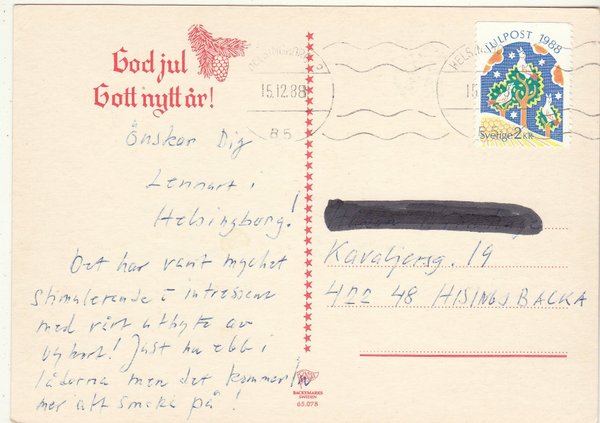 God jul
Gott nytt år!
HELSINGBORG 3
15.12.88
B5
JULPOST 1988
Sverige 2 KR
Önskar Dig
Lennart i
Helsingborg!
Det har varit mycket
stimulerande o intressent
med vårt utbyte av
vykort! Just nu ebb i
lådorna men det kommer
mer att smaka på!
Kavaljersg. 19
422 48 HISINGS BACKA
BACKYMARKS
SWEDEN
65.078